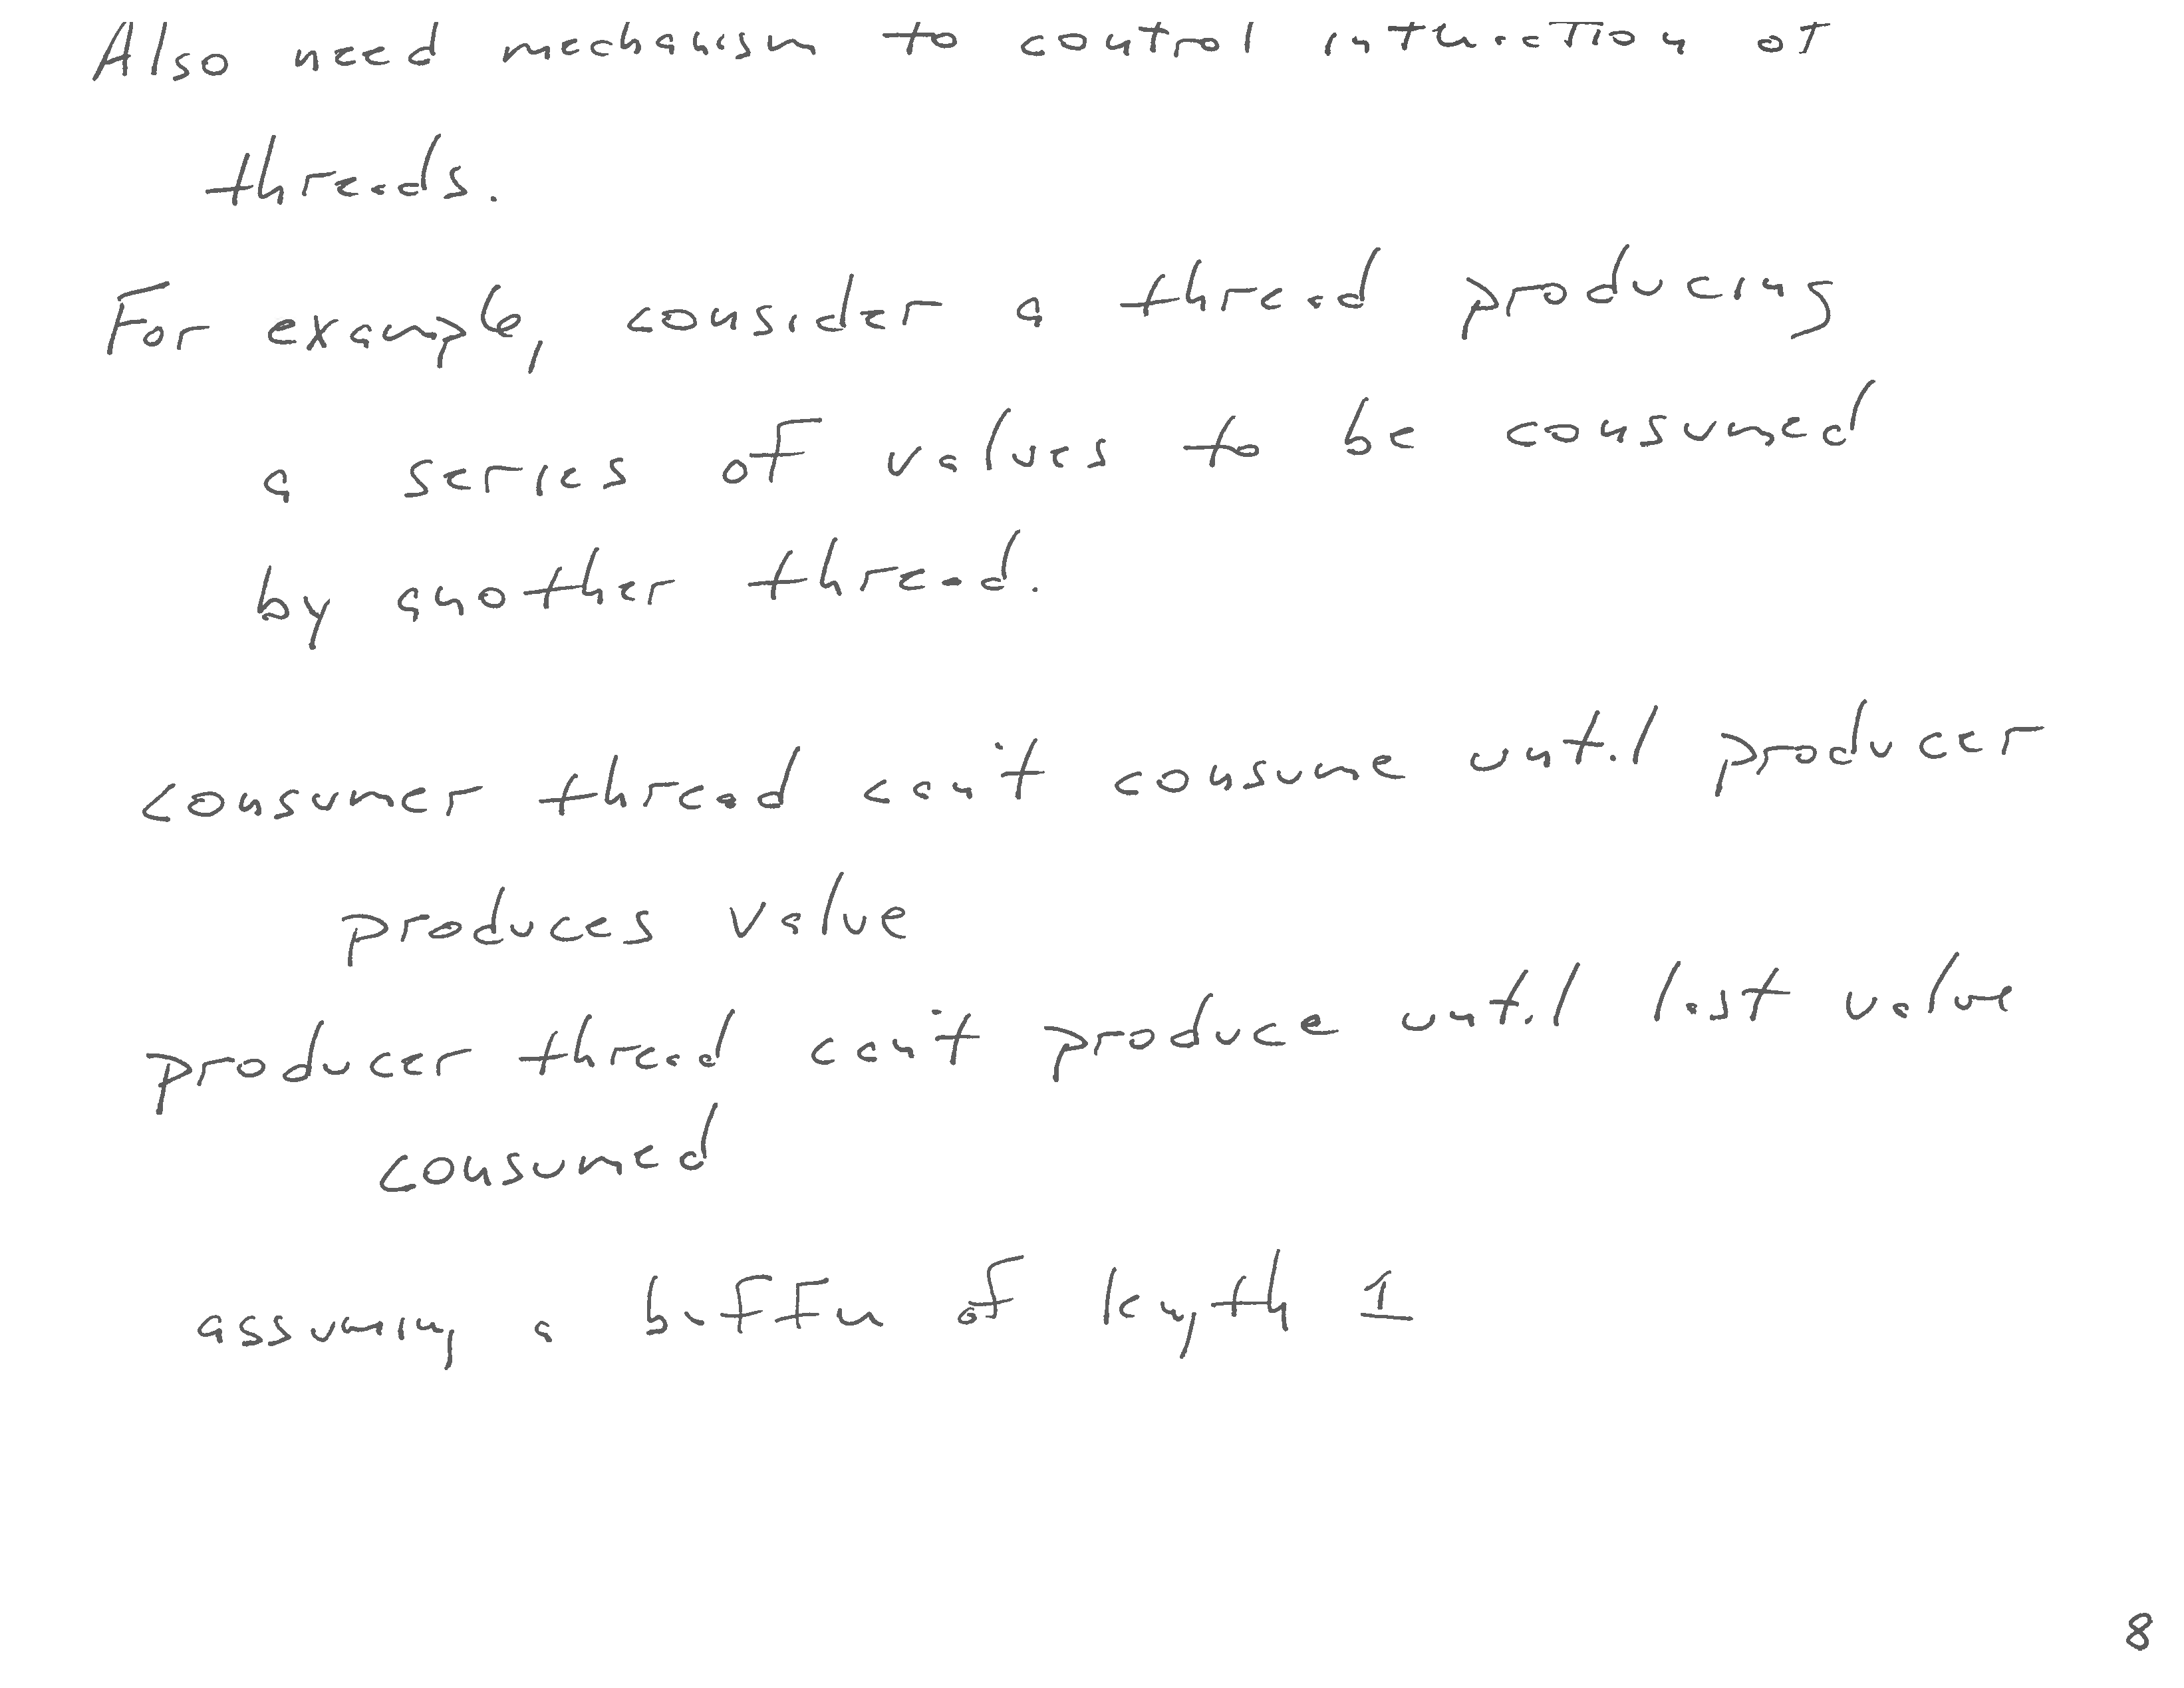 Also need mechanism to control interaction of
threads.
For example, consider a thread producing
a series of values to be consumed
by another thread.
consumer thread can't consume until producer
produces value
producer thread can't produce until last value
consumed
assuming a buffer of length 1
8